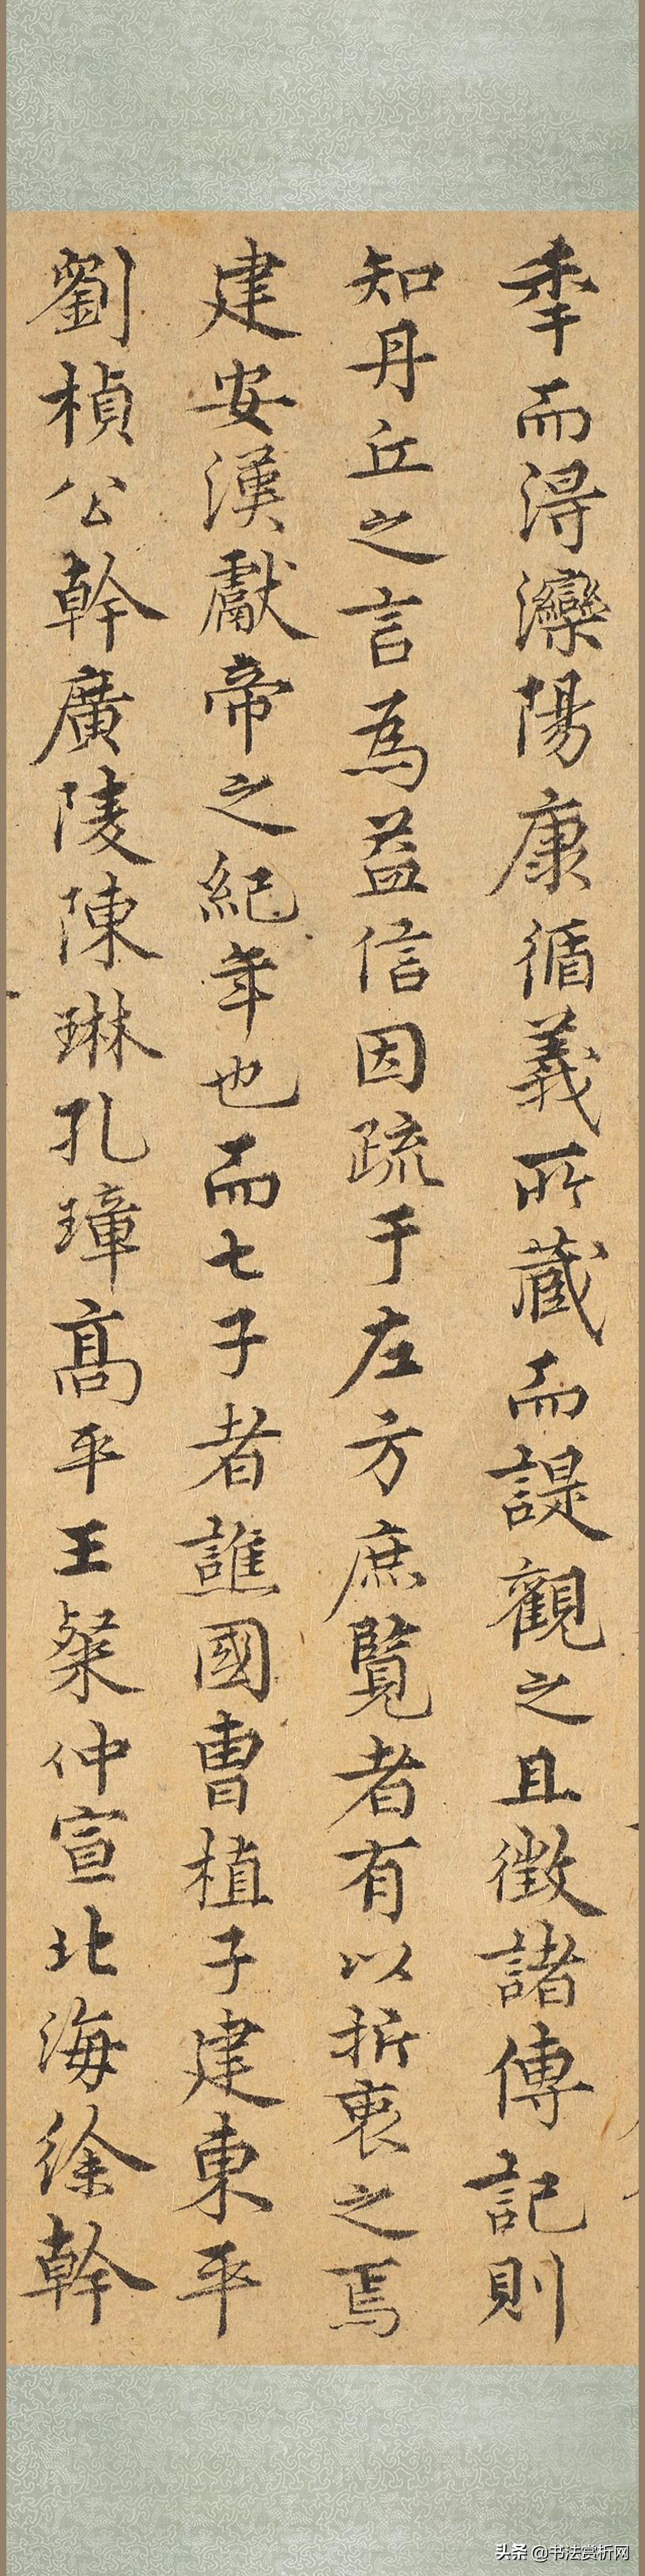 秊而得灤陽康循義所藏而諟觀之且徴諸傳記則
知丹丘之言為益信因疏于左方庶覧者有以折衷之焉
建安漢獻帝之紀年也而七子者譙國曹植子建東平
劉楨公幹廣陵陳琳孔璋高平王粲仲宣北海徐幹
头条 @书法赏析网